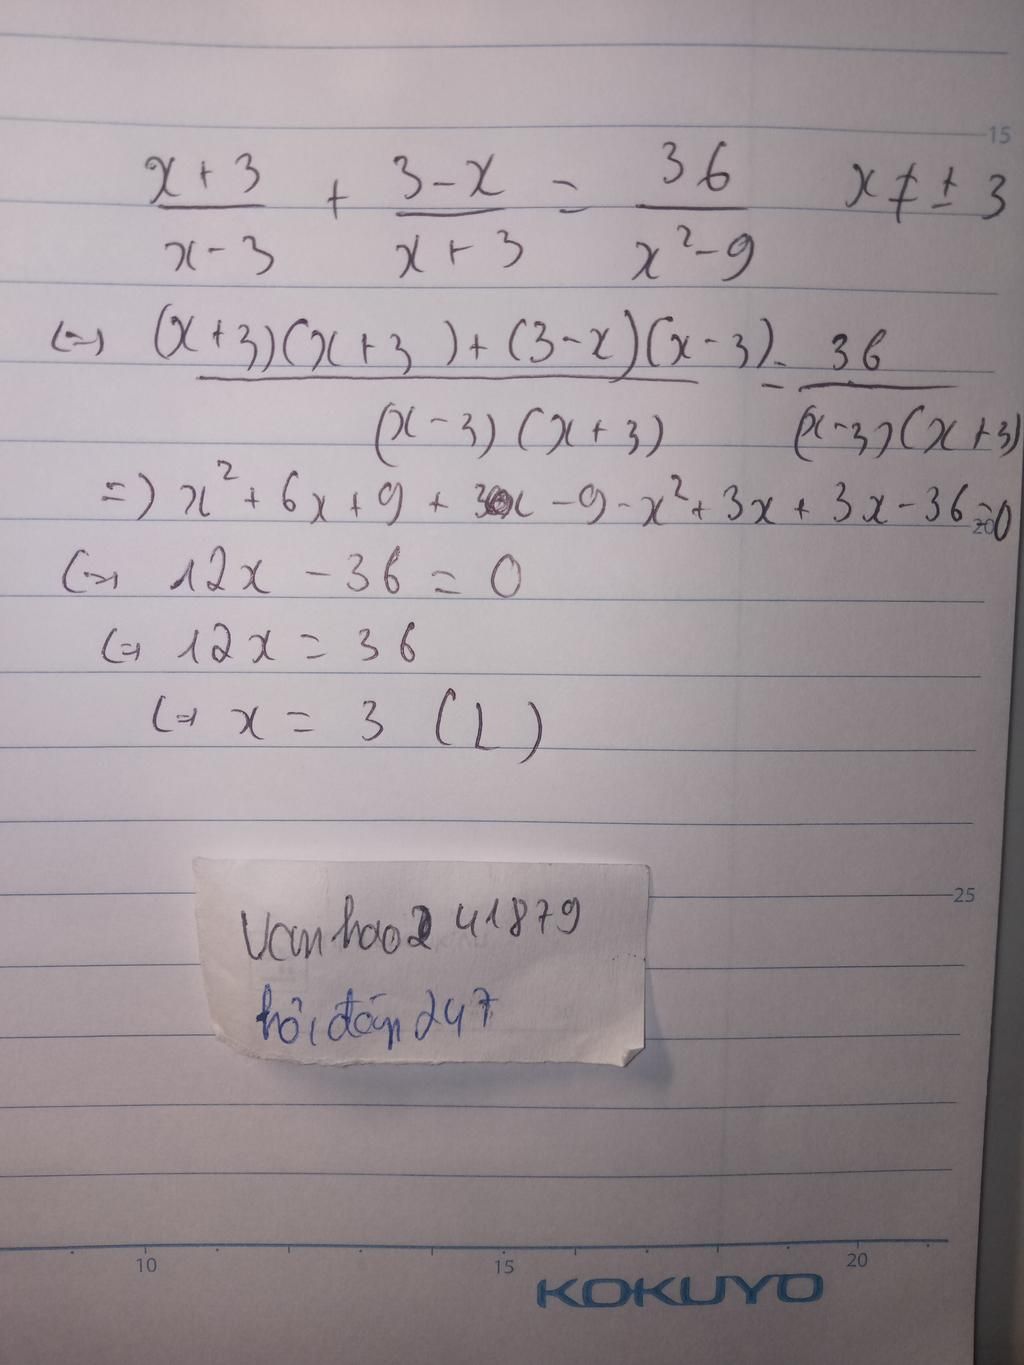 15
x+3/x-3 + 3-x/x+3 = 36/x²-9 x ≠ ± 3
(=) (x+3)(x+3)+(3-x)(x-3)/(x-3)(x+3) = 36/(x-3)(x+3)
=) x²+6x+9+3x-9-x²+3x+3x-36=0
20
(=) 12x-36=0
(=) 12x=36
(=) x=3 (L)
25
Vanhao241879
hỏi đáp 247
10 15 20
KOKUYO